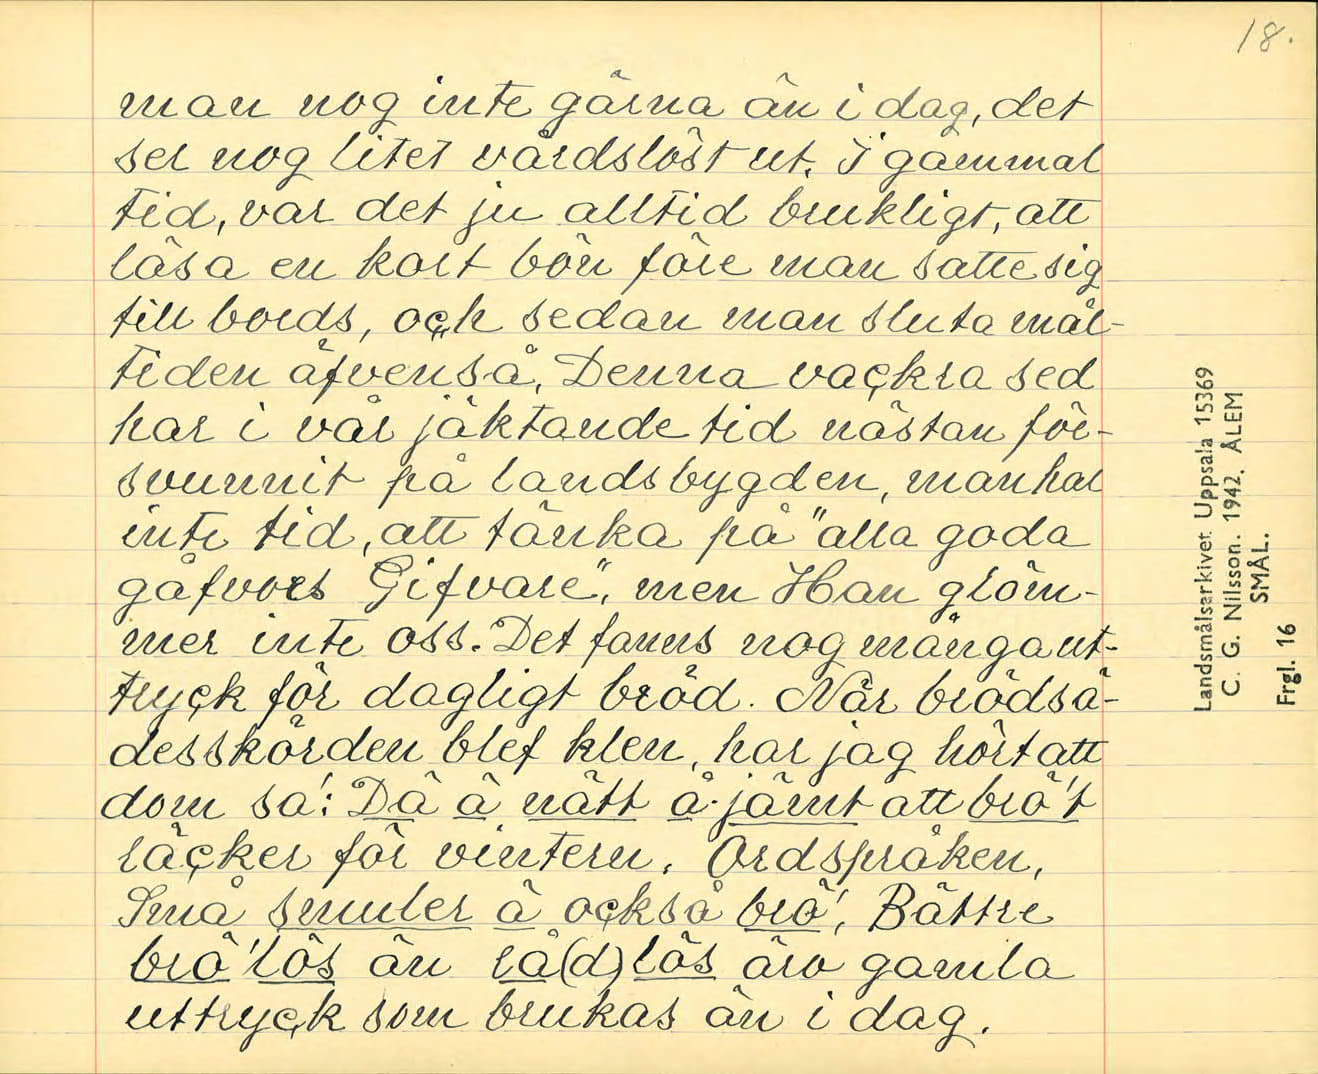 18.
man nog inte gärna än i dag, det
ser nog litet vårdslöst ut. I gammal
tid, var det ju alltid brukligt, att
läsa en kort bön före man satte sig
till bords, och sedan man sluta mål-
tiden äfvenså. Denna vackra sed
har i vår jäktande tid nästan för-
svunnit på landsbygden, man har
inte tid, att tänka på "alla goda
gåfvors Gifvare", men Han glöm-
mer inte oss. Det fanns nog många ut-
tryck för dagligt bröd. När brödsä-
desskörden blef klen, har jag hört att
dom sa': Dä ä nätt å jämt att brö't
räcker för vintern. Ordspråken,
Små smuler ä också brö', Bättre
brö'lös än rå(d)lös äro gamla
uttryck som brukas än i dag.
Landsmålsarkivet Uppsala 15369
C. G. Nilsson. 1942. ÅLEM
SMÅL.
Frgl. 16